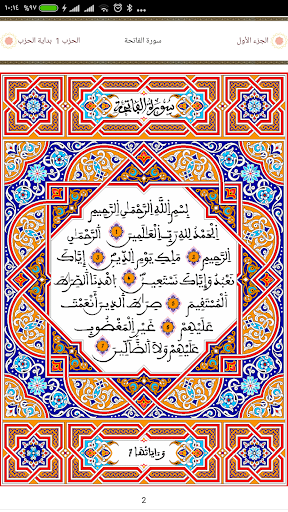 ١٠:١٤ ٩٧%
الجزء الأول سورة الفاتحة الحزب 1 بداية الحزب
سورة الفاتحة
بِسْمِ اللَّهِ الرَّحْمَٰنِ الرَّحِيمِ
الْحَمْدُ لِلَّهِ رَبِّ الْعَٰلَمِينَ 1 الرَّحْمَٰنِ
الرَّحِيمِ 2 مَلِكِ يَوْمِ الدِّينِ 3 إِيَّاكَ
نَعْبُدُ وَإِيَّاكَ نَسْتَعِينُ 4 اهْدِنَا الصِّرَٰطَ
الْمُسْتَقِيمَ 5 صِرَٰطَ الَّذِينَ أَنْعَمْتَ
عَلَيْهِمْ 6 غَيْرِ الْمَغْضُوبِ
عَلَيْهِمْ وَلَا الضَّآلِّينَ 7
وءاياتها 7
2